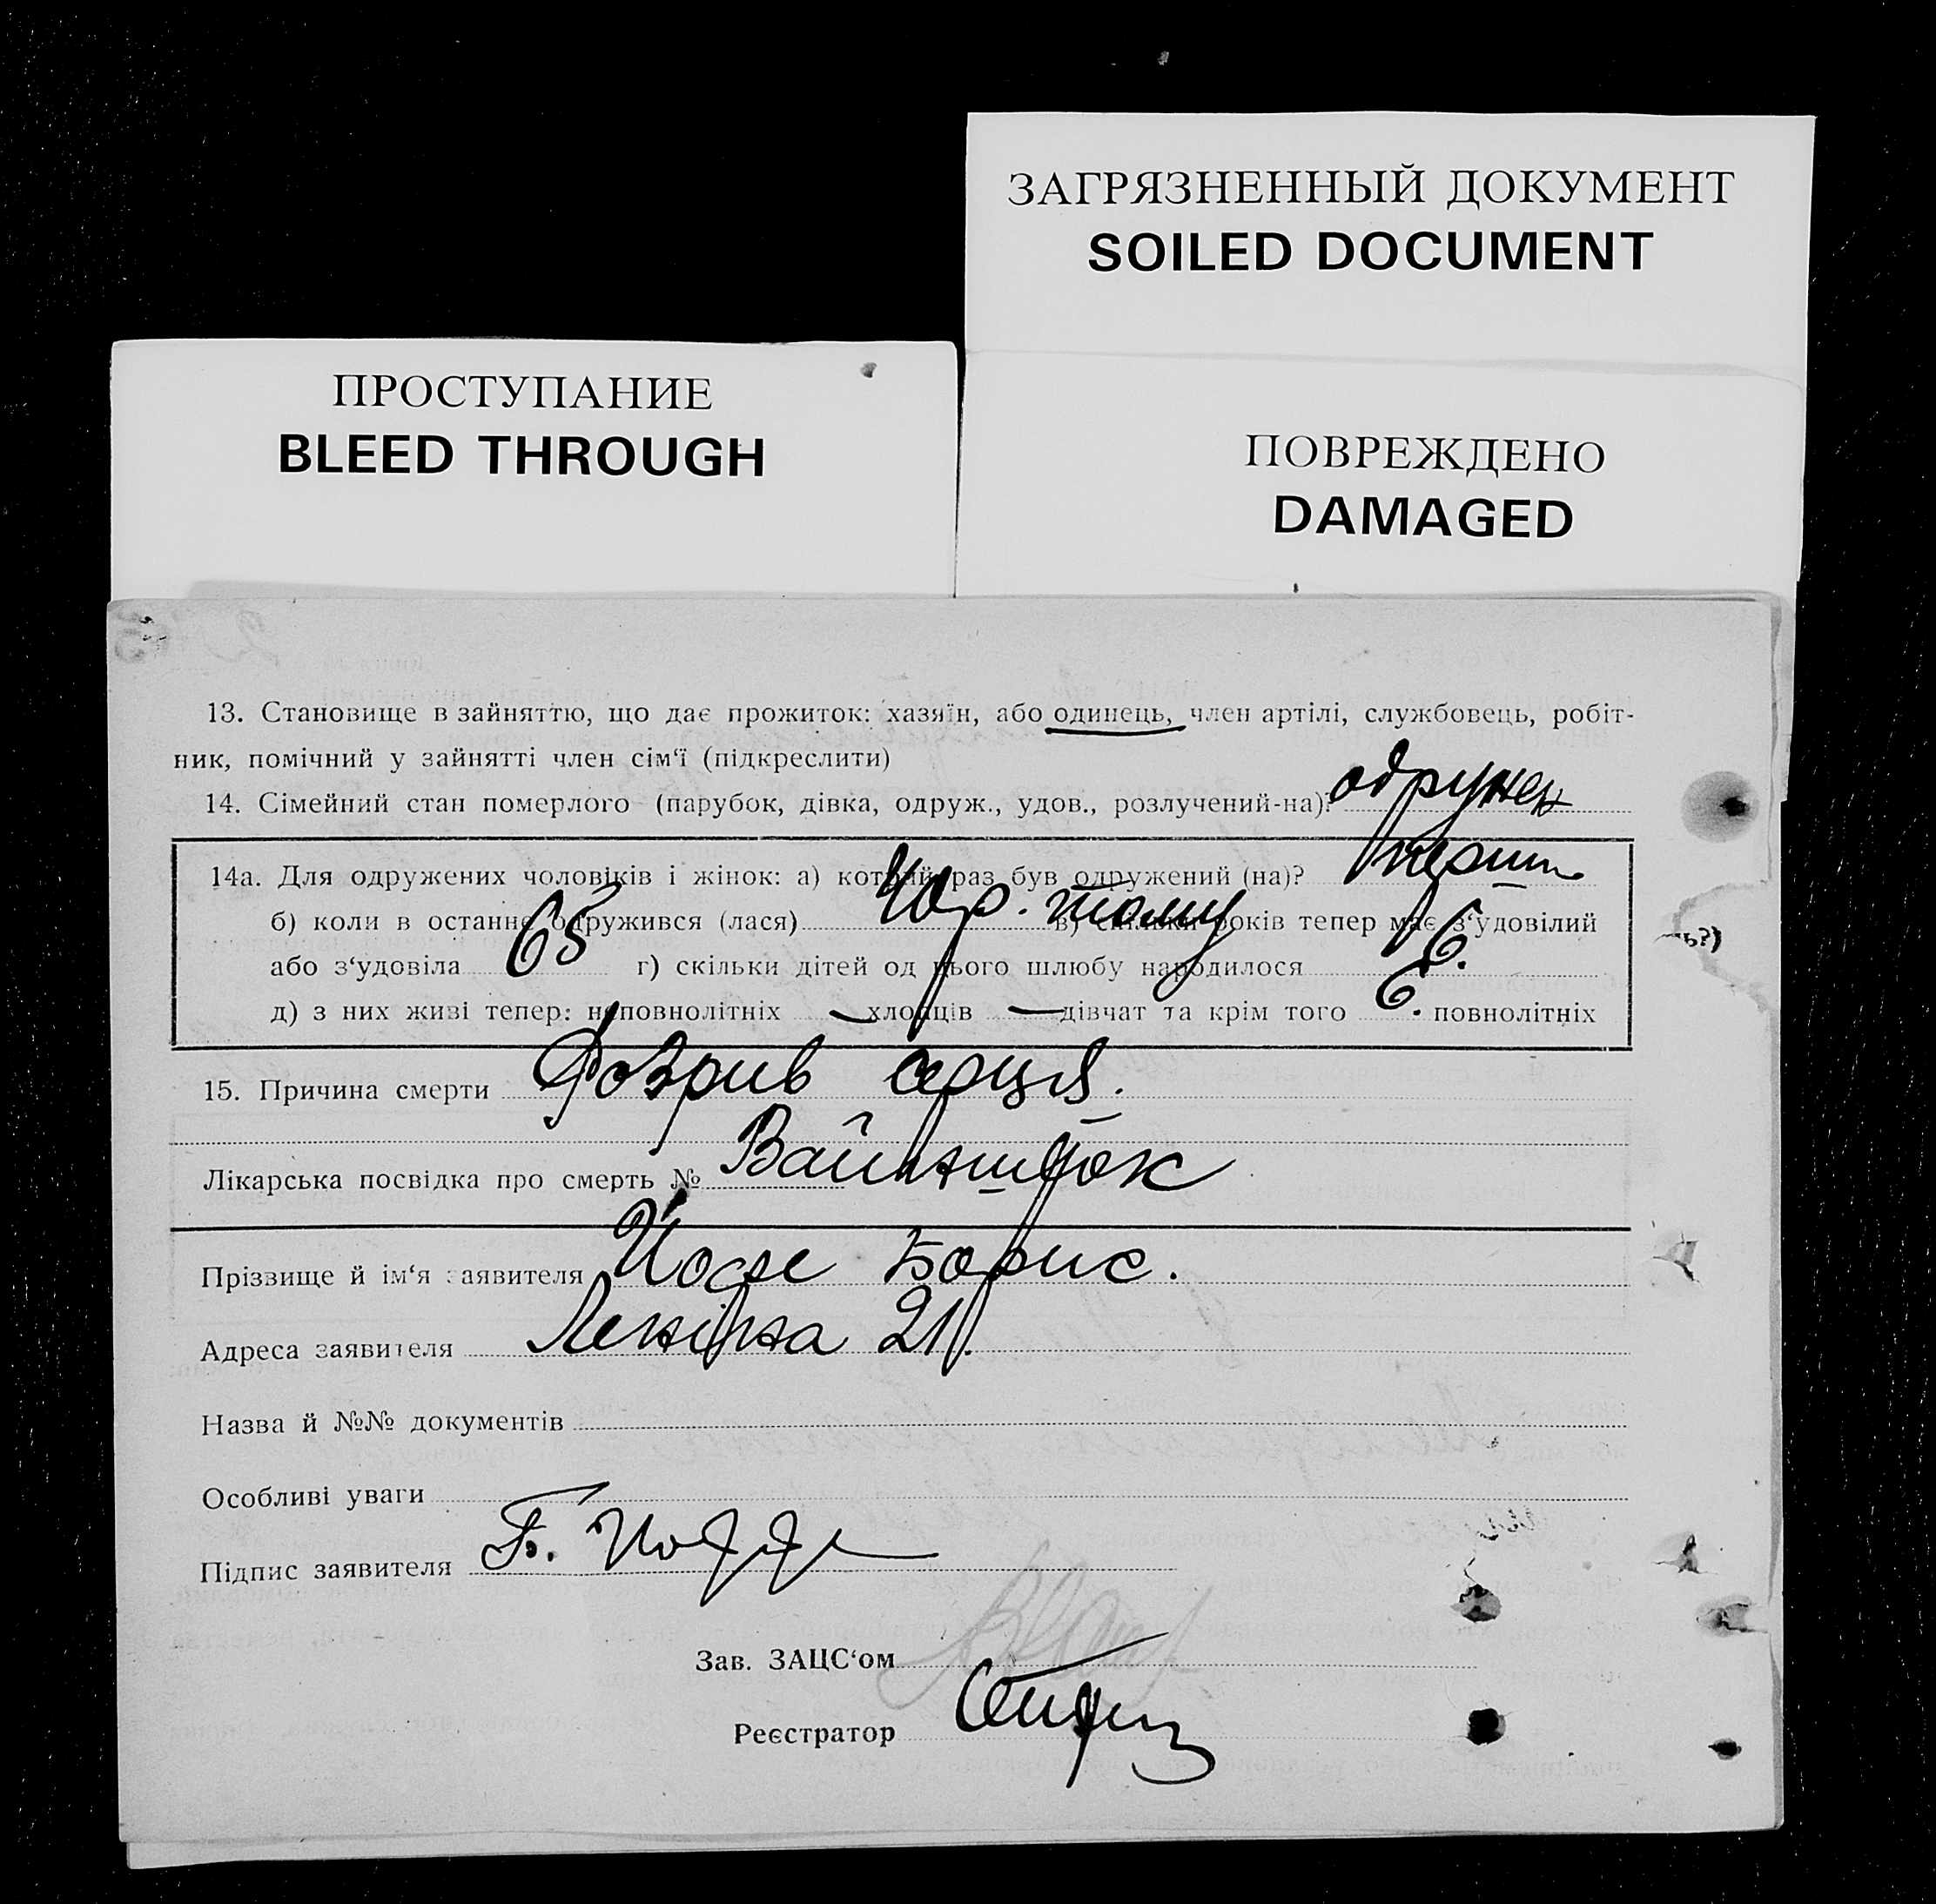 ЗАГРЯЗНЕННЫЙ ДОКУМЕНТ
SOILED DOCUMENT
ПРОСТУПАНИЕ
BLEED THROUGH
ПОВРЕЖДЕНО
DAMAGED
13. Становище в зайняттю, що дає прожиток: хазяїн, або одинець, член артілі, службовець, робіт-
ник, помічний у зайнятті член сім'ї (підкреслити)
14. Сімейний стан померлого (парубок, дівка, одруж., удов., розлучений-на)? одружен
14а. Для одружених чоловіків і жінок: а) котрий раз був одружений (на)? перший
б) коли в останнє одружився (лася) 40 р. тому в) скільки років тепер має з'удовілий
або з'удовіла 65 г) скільки дітей од цього шлюбу народилося 6.
д) з них живі тепер: неповнолітніх — хлопців — дівчат та крім того 6. повнолітніх
15. Причина смерти Розрив серця.
Лікарська посвідка про смерть № Вайншток
Прізвище й ім'я заявителя Йофе Борис.
Адреса заявителя Леніна 21
Назва й №№ документів
Особливі уваги
Підпис заявителя Б. Иоффе
Зав. ЗАЦС'ом
Реєстратор